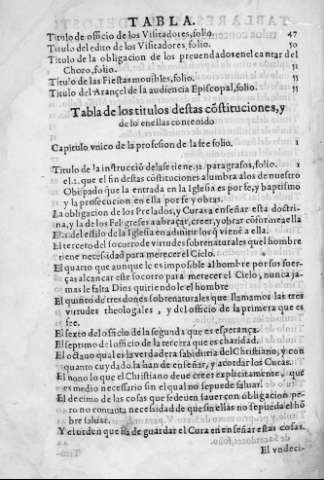 TABLA.
Titulo de officio de los Visitadores, folio. 47
Titulo del edito de los Visitadores, folio. 50
Titulo de la obligacion de los preuendados en el cantar del
Choro, folio. 52
Titulo de las Fiestas mouibles, folio. 55
Titulo del Arançel de la audiencia Episcopal, folio. 55
Tabla de los titulos destas cõstituciones, y
de lo en ellas contenido
Capitulo vnico de la profesion de la fee folio. 1
Titulo de la instrucciõ de la fe tiene. 11. paragrafos, folio. 1
el. 1. que el fin destas constituciones alumbra alos de nuestro
Obispado que la entrada en la Iglesia es por fe, y baptismo
y la prosecucion en ella por fe y obras.
La obligacion de los Prelados, y Curas a enseñar esta doctri-
na, y la de los Feligreses a abraçar, creer, y obrar cõforme a ella
El. 2. del estilo de la Iglesia en admitir los q̃ viene a ella.
El tercero del socorro de virtudes sobrenaturales que l hombre
tiene necessidad para merecer el Cielo.
El quarto que aunque le es imposible al hombre por sus fuer-
ças alcançar este socorro para merecer el Cielo, nunca ja-
mas le falta Dios quiriendo le el hombre
El quinto de tres dones sobrenaturales que llamamos las tres
virtudes theologales, y del officio de la primera que es
fee.
El sexto del officio de la segunda que es esperança.
El septimo del officio de la tercera que es charidad.
El octauo qual es la verdadera sabiduria del Christiano, y con
quanto cuydado la han de enseñar, y acordar los Curas.
El nono lo que el Christiano deue creer explicitamente, que
es medio necessario sin el qual no se puede saluar.
El decimo de las cosas que se deuen sauer con obligacion pe-
ro no con tanta necessidad de que sin ellas no se pueda el hõ
bre saluar.
Y el orden que ha de guardar el Cura en enseñar estas cosas.
El vndeci-